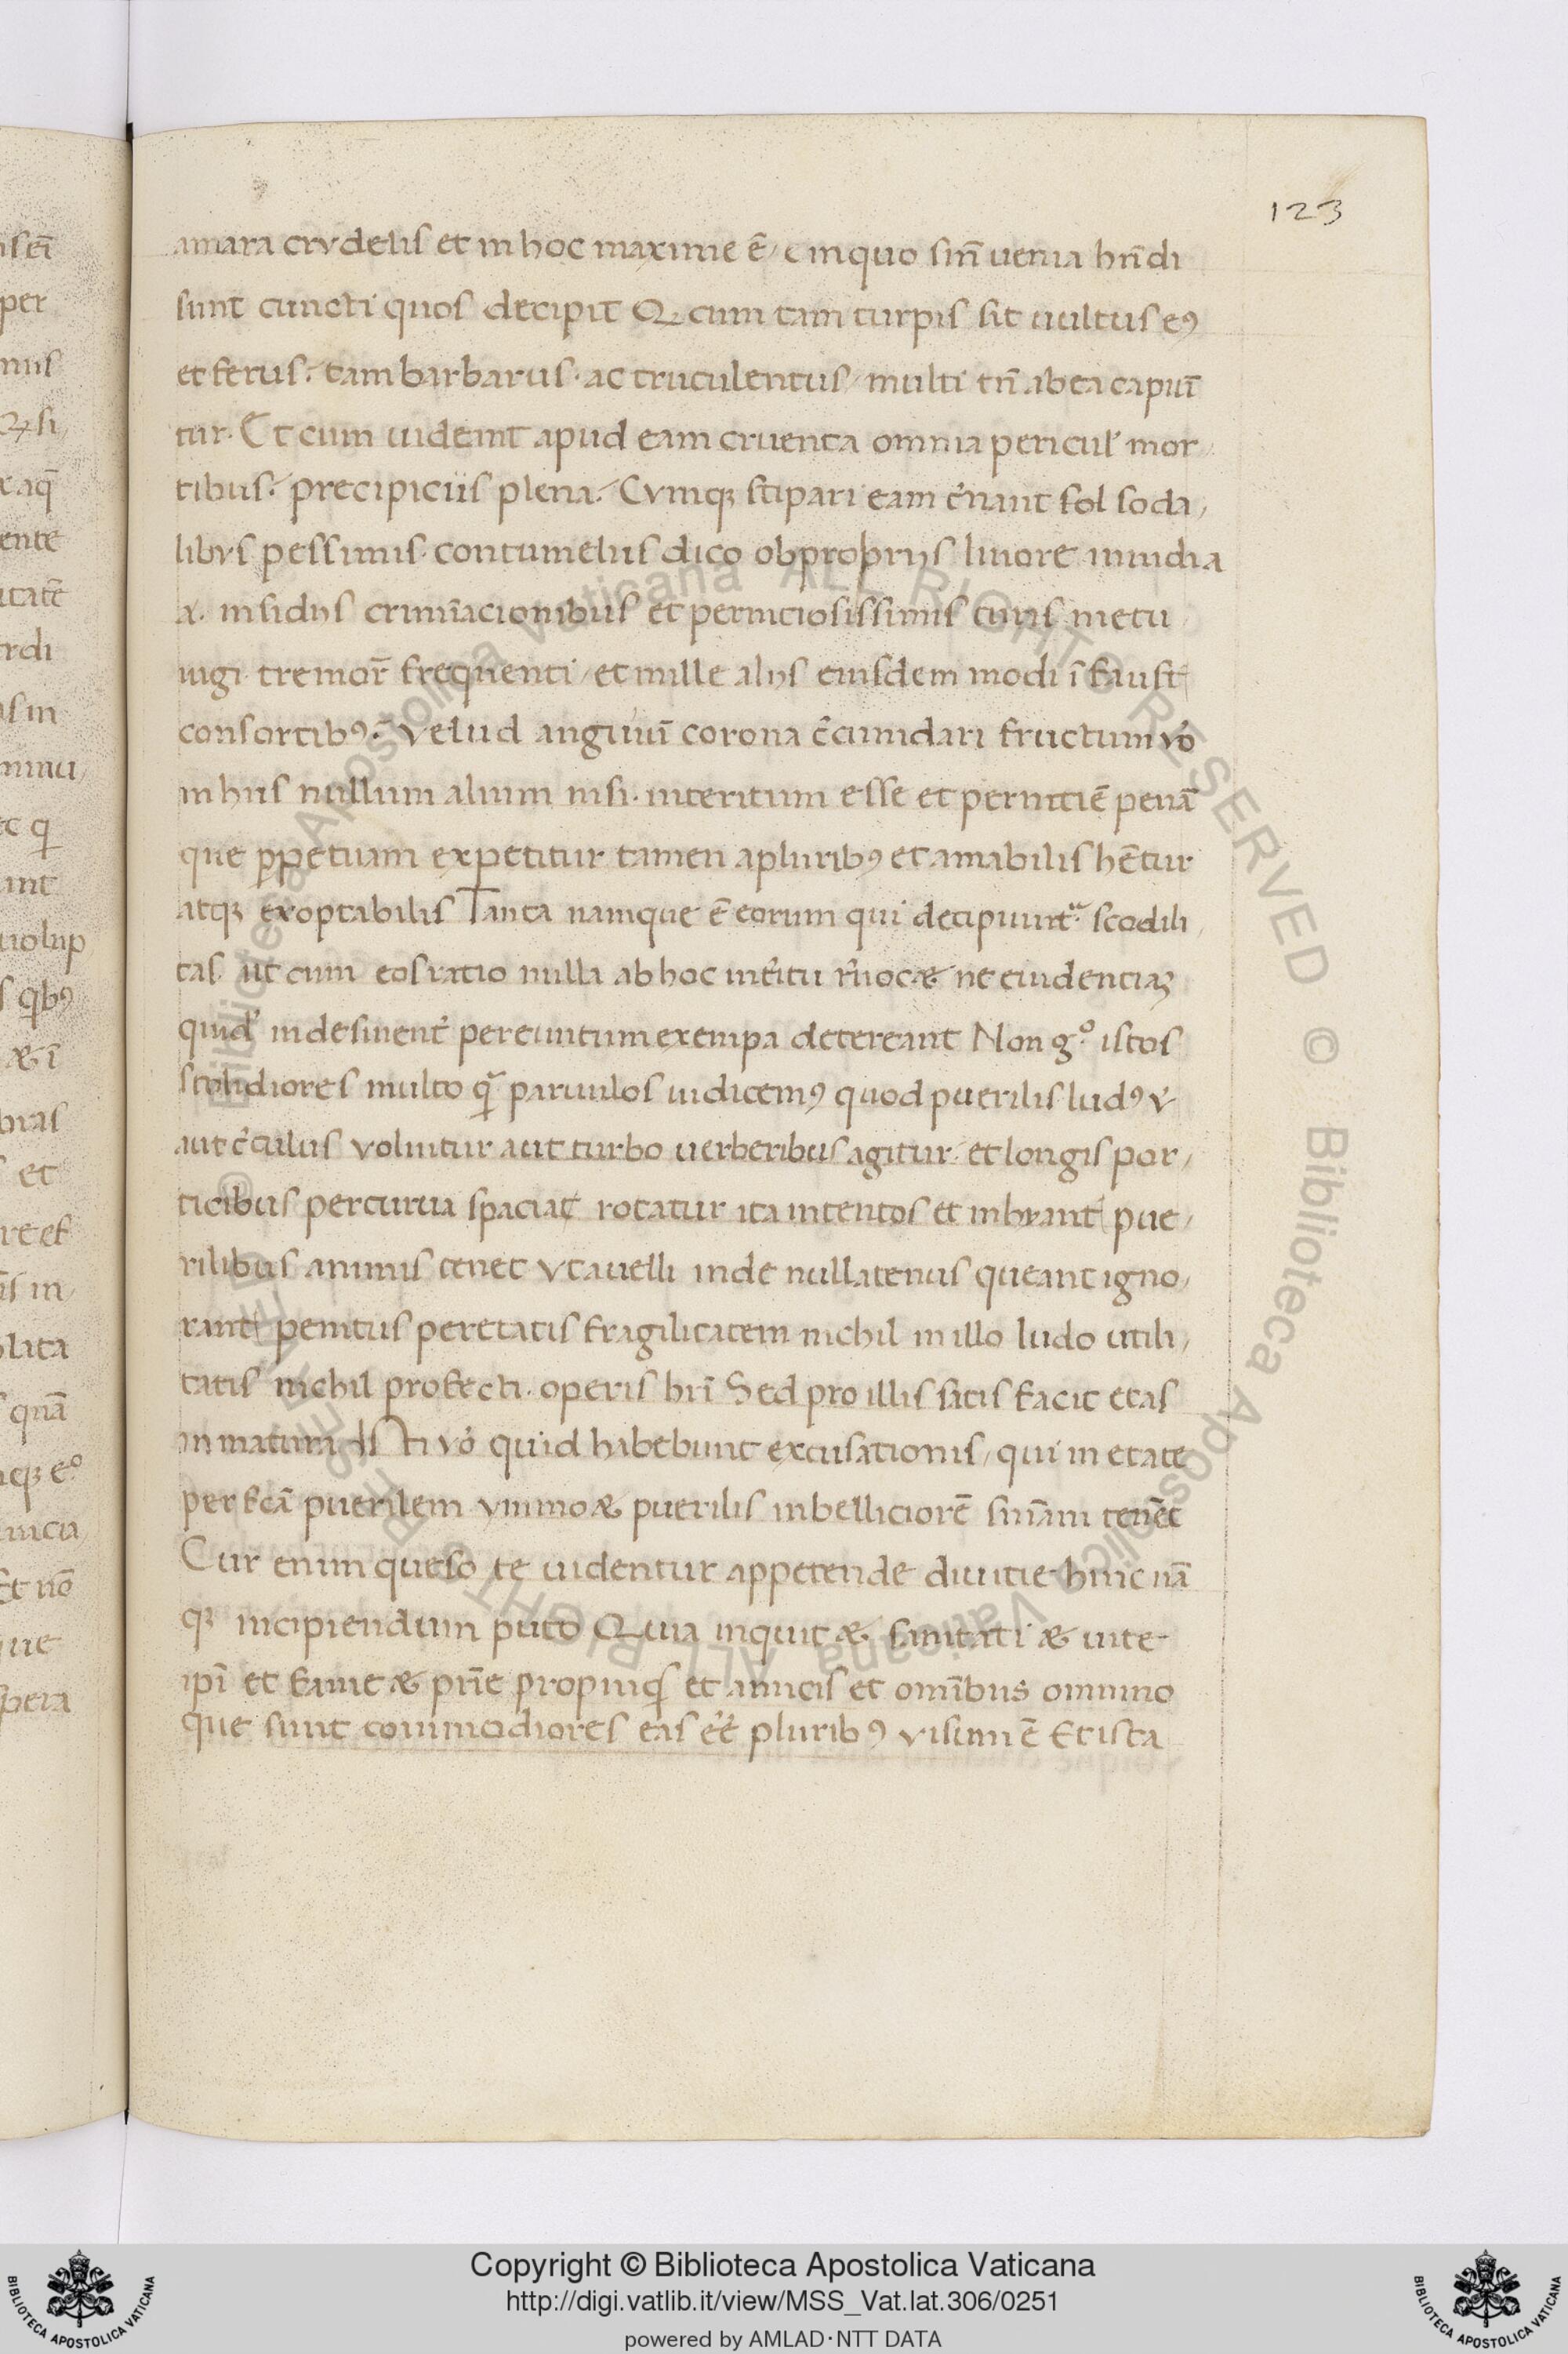 123
amara crvdelis et in hoc maxime ē / in quo sn̄ uenia hn̄di
sunt cuncti quos decipit Q cum tam turpis sit uultus eꝰ
et ferus. tam barbarus · ac truculentus / multi tn̄ ab ea capiūt
tur. Et cum uideant apud eam cruenta omnia pericul' mor
tibus. precipiciis plena. Cvmqꝫ stipari eam c̄nant sol soda,
libvs pessimis · contumeliis dico obproprijs liuore inuidia
insidijs crimīacionibus et perniciosissimis curis metu
iugi tremor̄ frequenti / et mille alijs eiusdem modi ī faust
consortibꝰ. velud anguiū corona c̄cumdari fructum vo̓
in hiis nullum alium nisi · interitum esse et pernitiē penā
que ꝑpetuam expetitur tamen a pluribꝰ et amabilis hētur
atqꝫ exoptabilis Tanta namque ē eorum qui decipiunt scodili
tas ut cum eos ratio nulla ab hoc int̓itu r̓uocæ ne euidenciaꝫ
quid' indesinent̓ pereuntum exempa detereant Non gͦ istos
stolidiores multo qᷓ paruulos iudicemꝰ quod puerilis ludꝰ v̓
aut c̄culus voluitur aut turbo uerberibus agitur et longis por,
ticibus percurua spaciat rotatur ita intentos et inhyant pue,
rilibus animis tenet vt auelli inde nullatenus queant igno,
rant penitus per etatis fragilitatem nichil in illo ludo utili,
tatis nichil profecti · operis hr̄i Sed pro illis satis facit etas
inmatura Isti vo̓ quid habebunt excusationis / qui in etate
perfcā puerilem ymmo æ puerilis inbelliciorē snīam tenēt
Cur enim queso te uidentur appetende diuitie hinc nā
qꝫ incipiendum puto Quia inquit æ sanitati æ uite
ipī et fame æ prīe propinqs et amicis et omībus omnino
que sunt commodiores eas ēē pluribꝰ visum ē Et ista
Copyright © Biblioteca Apostolica Vaticana
http://digi.vatlib.it/view/MSS_Vat.lat.306/0251
powered by AMLAD·NTT DATA